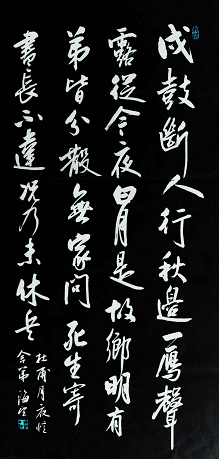 戍鼓斷人行秋邊一鴈聲
露從今夜白月是故鄉明有
弟皆分散無家問死生寄
書長不達况乃未休兵
杜甫月夜憶
舍弟 海